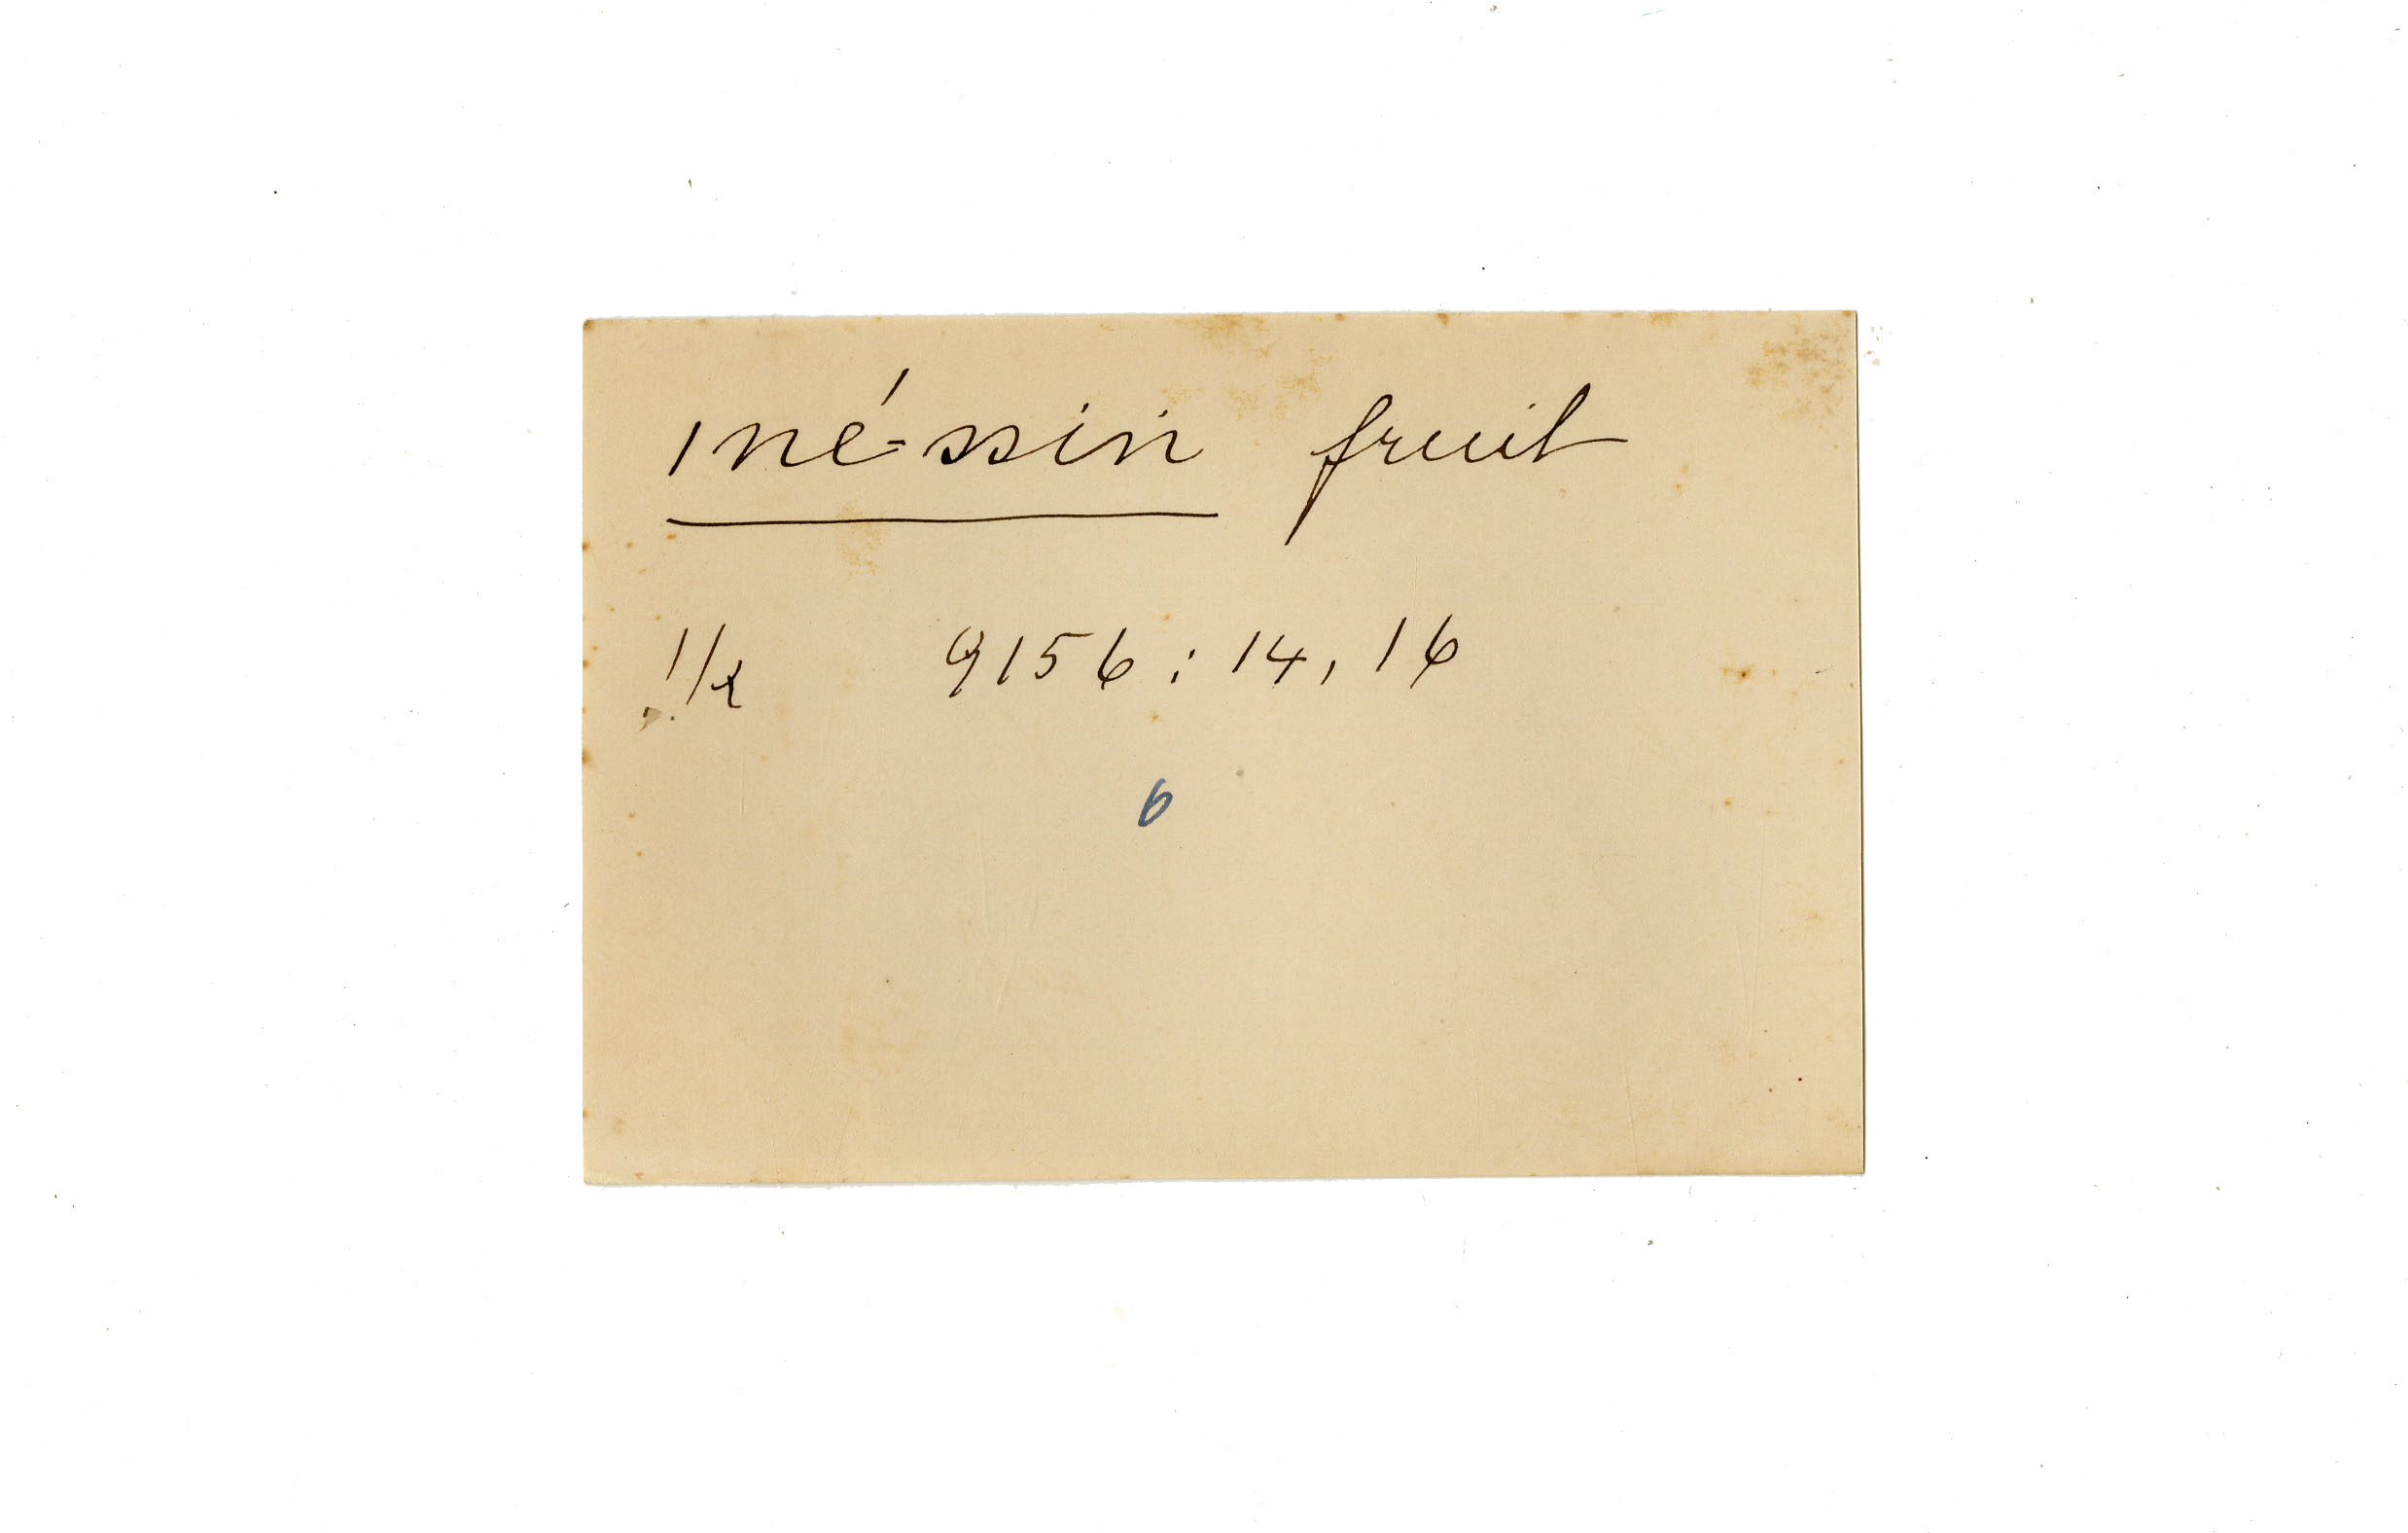 iné-ssin fruit
9156 : 14, 16
6